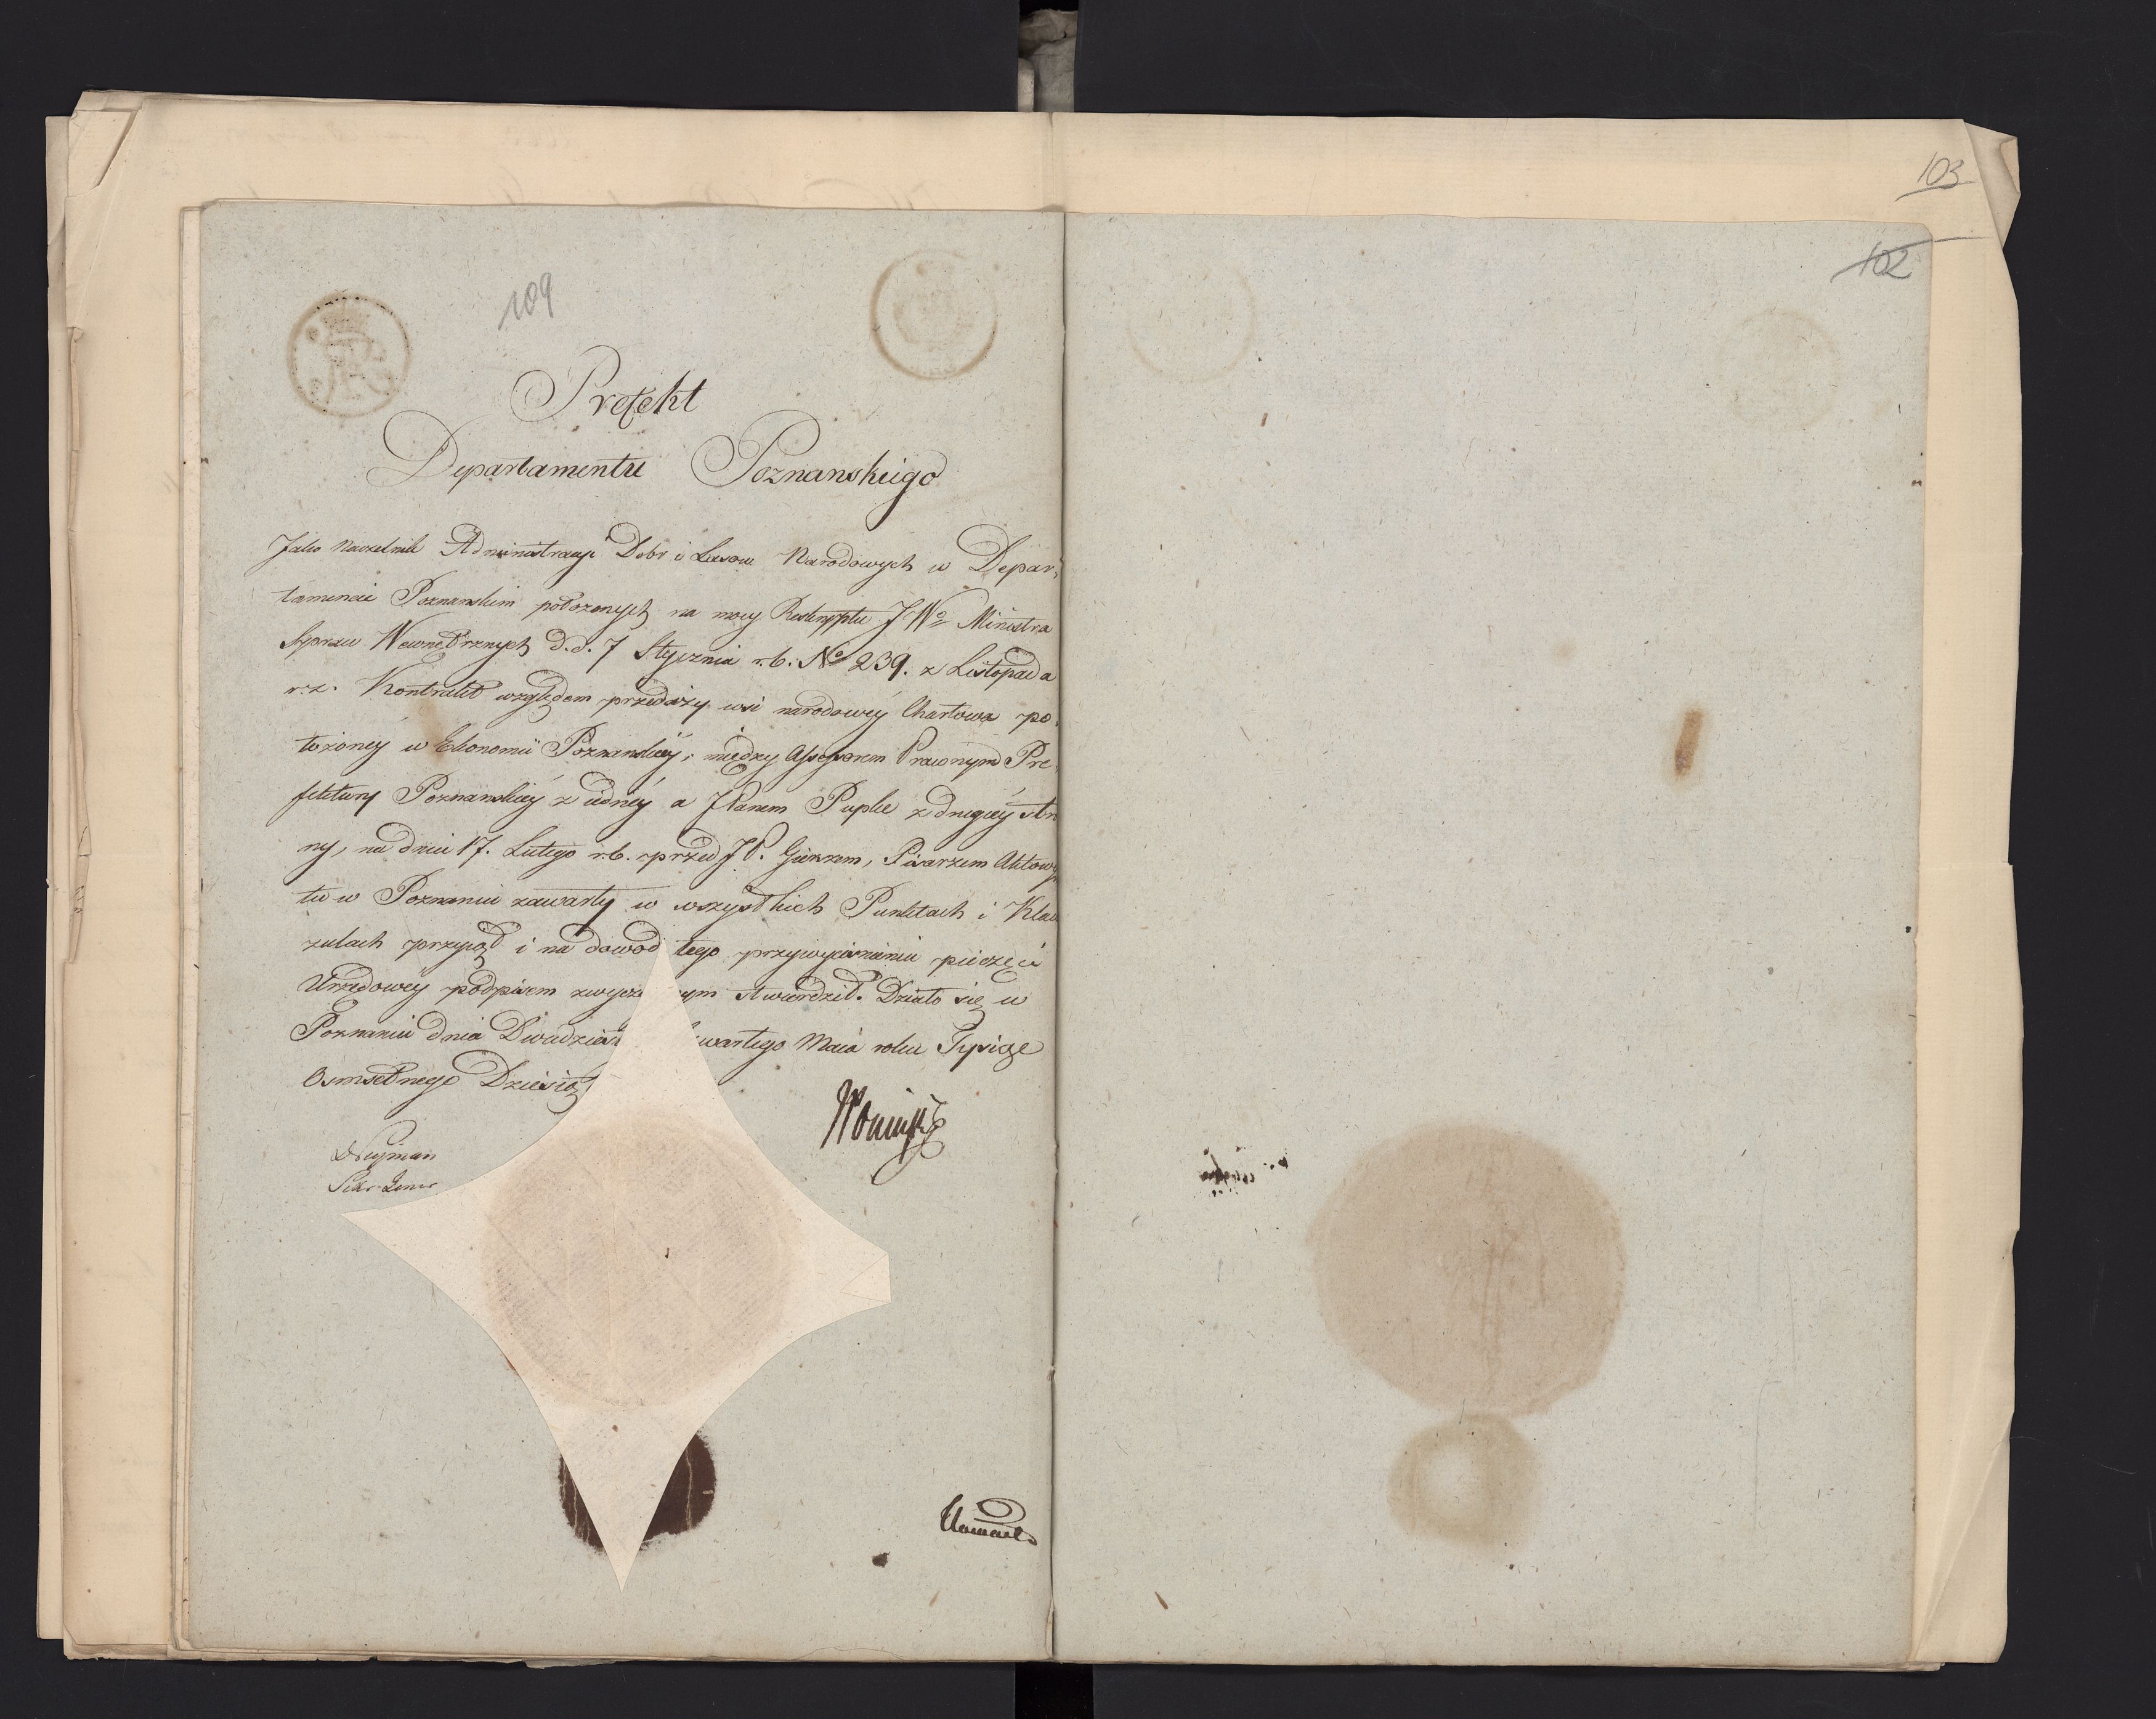 103
102
109
Prefekt
Departamentu Poznanskiego
Jako Naczelnik Administracyi Dobr i Lasow Narodowych w Depar,
tamencie Poznanskim położonych na mocy Reskryptu JWo Ministra
Spraw Wewnętrznych d.d. 7 Stycznia r.b. No 239. z Listopada
r.z. Kontrakt względem przedaży wsi narodowey Chartowa po,
łożoney w Ekonomii Poznanskiey; między Assessorem Prawnym Pre,
fektury Poznanskiey z iedney a JPanem Pupke z drugiey stro
ny, na dniu 17. Lutego r.b. przed JP. , Pisarzem Aktowym
tu w Poznaniu zawarty w wszystkich Punktach i Klau
zulach przyiął i na dowod tego przywyciśnieniu pieczęci
Urzędowey podpisem zwycza nym stwierdził. Działo się w
Poznaniu dnia Dwudzies wartego Maia roku Tysiąc
Osmsetnego Dziesią
Poniński
Sekr. Gener